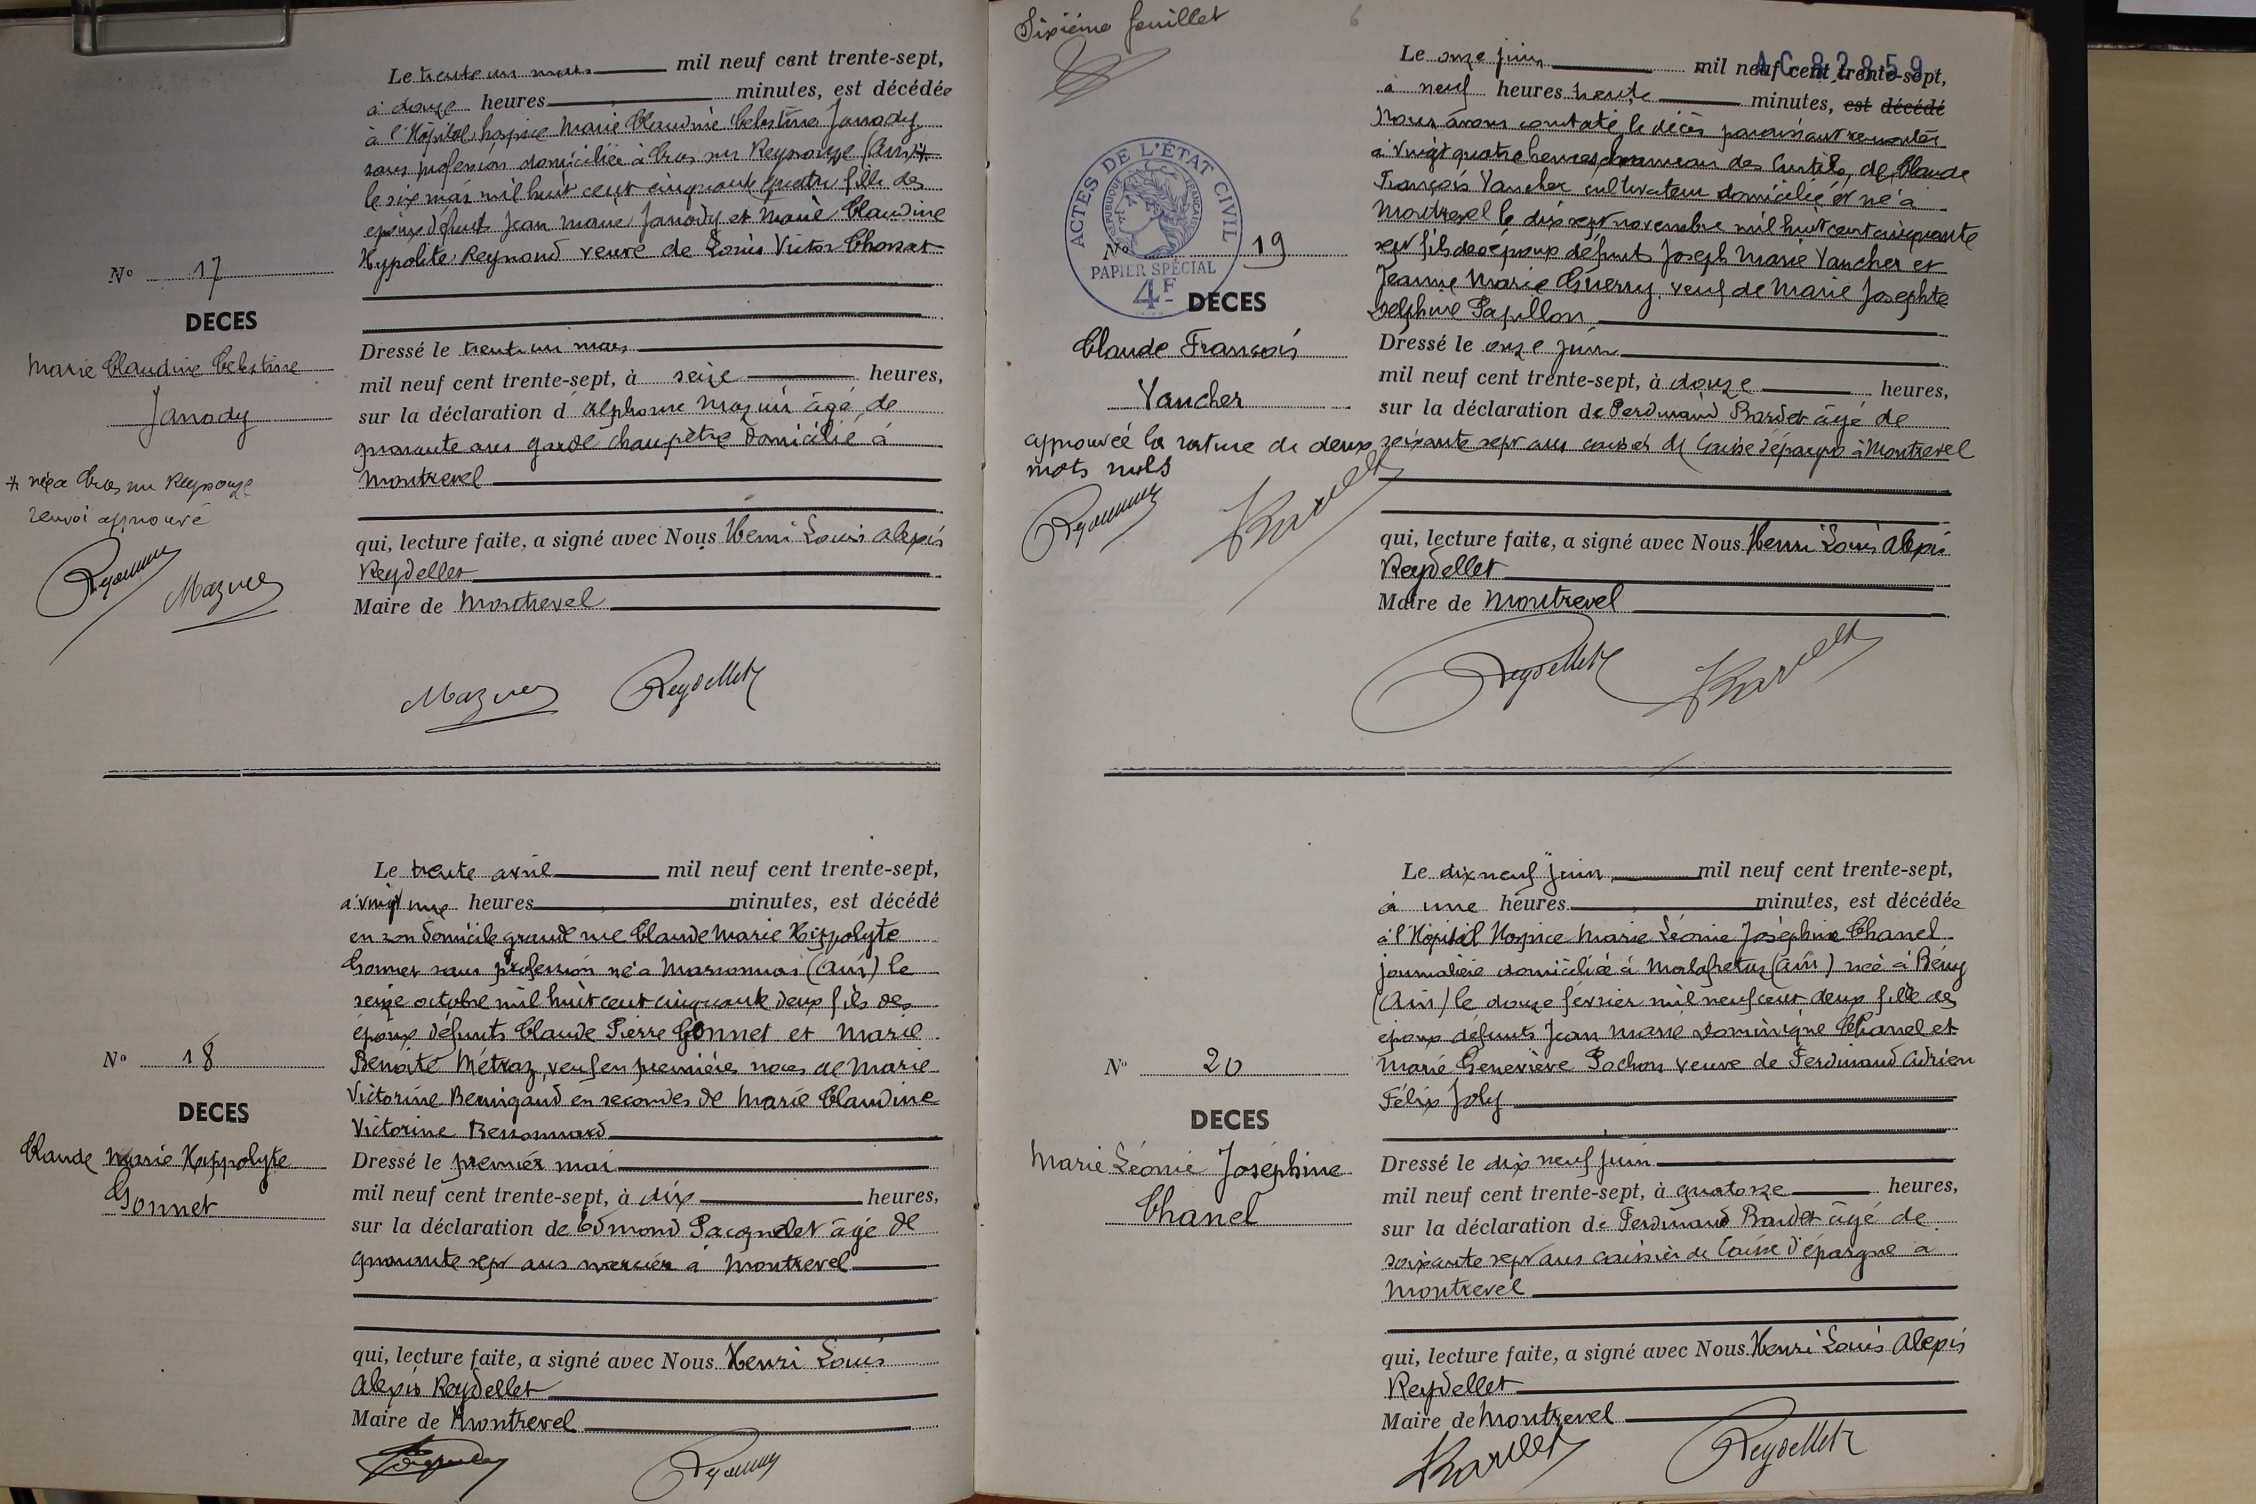 Le trente un mars mil neuf cent trente-sept,
à douze heures minutes, est décédée
à l'Hôpital hospice Marie Claudine Celestine Janody
sans profession domiciliée à Cras sur Reyssouze (Ain) *
le six mai mil huit cent cinquante quatre fille des
époux défunts Jean Marie Janody et Marie Claudine
Hypolite Reynoud veuve de Louis Victor Chossat
N° 17
DECES
Marie Claudine Celestine
Janody
* née à Cras sur Reyssouze
renvoi approuvé
Mazuir
Dressé le trente un mars
mil neuf cent trente-sept, à seize heures,
sur la déclaration d'Alphonse Mazuir âgé de
quarante ans garde champêtre domicilié à
Montrevel
qui, lecture faite, a signé avec Nous Henri Louis Alexis
Reydellet
Maire de Montrevel
Mazuir Reydellet
Le trente avril mil neuf cent trente-sept,
à vingt une heures minutes, est décédé
en son domicile grande rue Claude Marie Hippolyte
Gonnet sans profession né à Marsonnas (Ain) le
seize octobre mil huit cent cinquante deux fils des
époux défunts Claude Pierre Gonnet et Marie
Benoite Métraz, veuf en premières noces de Marie
Victorine Bernigaud en secondes de Marie Claudine
Victorine Bessonnard
N° 18
DECES
Claude Marie Hippolyte
Gonnet
Dressé le premier mai
mil neuf cent trente-sept, à dix heures,
sur la déclaration de Edmond Pacquelet âgé de
quarante sept ans mercier à Montrevel
qui, lecture faite, a signé avec Nous Henri Louis
Alexis Reydellet
Maire de Montrevel
Sixième feuillet
6
AC 82859
Le onze juin mil neuf cent trente-sept,
à neuf heures trente minutes, est décédé
Nous avons constaté le décès paraissant remonter
à vingt quatre heures, hameau des Curtils, de Claude
François Vaucher cultivateur domicilié et né à
Montrevel le dix sept novembre mil huit cent cinquante
sept fils des époux défunts Joseph Marie Vaucher et
Jeanne Marie Guerry, veuf de Marie Josephte
Delphine Papillon
ACTES DE L'ÉTAT CIVIL
RÉPUBLIQUE FRANÇAISE
PAPIER SPÉCIAL
4F
N° 19
DECES
Claude François
Vaucher
approuvée la rature de deux
mots nuls
Dressé le onze juin
mil neuf cent trente-sept, à douze heures,
sur la déclaration de Ferdinand Bardet âgé de
soixante sept ans caissier de Caisse d'épargne à Montrevel
qui, lecture faite, a signé avec Nous Henri Louis Alexis
Reydellet
Maire de Montrevel
Reydellet Bardet
Le dix neuf juin mil neuf cent trente-sept,
à une heures minutes, est décédée
à l'Hôpital Hospice Marie Léonie Joséphine Chanel
journalière domiciliée à Malafretaz (Ain) née à Bény
(Ain) le douze février mil neuf cent deux fille des
époux défunts Jean Marie Dominique Chanel et
Marie Geneviève Pochon veuve de Ferdinand Adrien
Félix Joly
N° 20
DECES
Marie Léonie Joséphine
Chanel
Dressé le dix neuf juin
mil neuf cent trente-sept, à quatorze heures,
sur la déclaration de Ferdinand Bardet âgé de
soixante sept ans caissier de Caisse d'épargne à
Montrevel
qui, lecture faite, a signé avec Nous Henri Louis Alexis
Reydellet
Maire de Montrevel
Bardet Reydellet